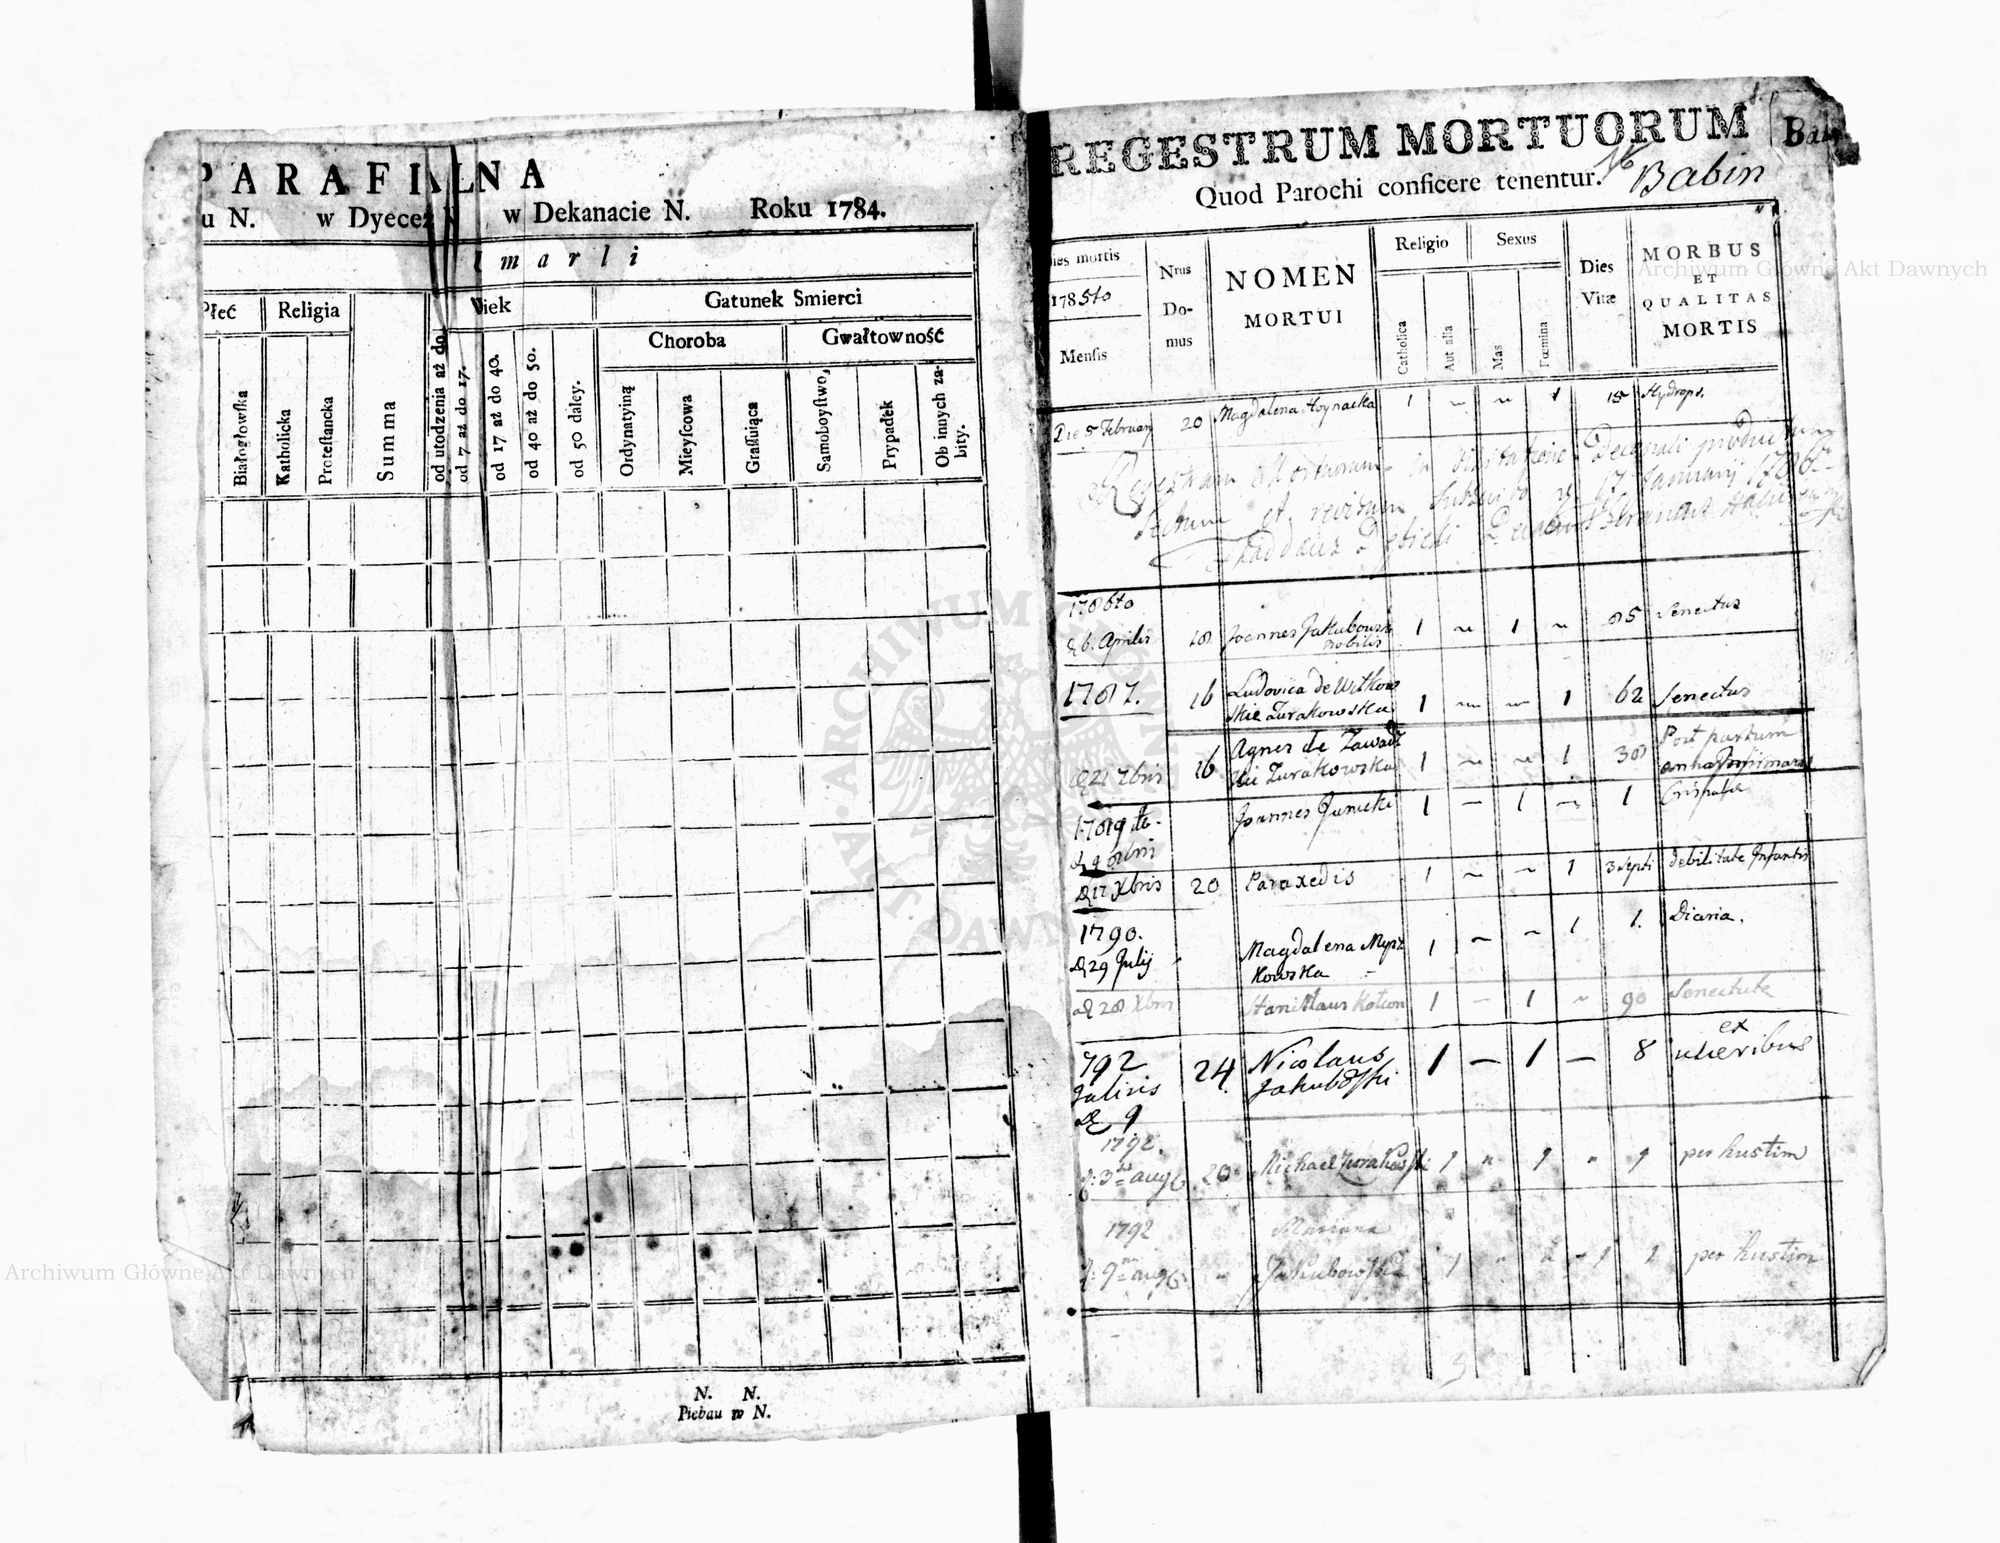 PARAFIALNA
u N. w Dyecez N w Dekanacie N. Roku 1784.
Umarli
Płeć Religia Wiek Gatunek Smierci
Choroba Gwałtowność
Białogłowska
Katholicka
Protestancka
Summa
od urodzenia aż do
od 7 aż do 17.
od 17 aż do 40.
od 40 aż do 50.
od 50 dalcy.
Ordynaryiną
Mieyscowa
Grassuiąca
Samoboystwo,
Prypadek
Ob innych zabity.
N. N.
Pleban w N.
REGESTRUM MORTUORUM
Quod Parochi conficere tenentur.
Babin
Dies mortis
1785to
Mensis
Nrus Domus
NOMEN
MORTUI
Religio
Catholica
Aut alia
Sexus
Mas
Fœmina
Dies
Vitæ
MORBUS
ET
QUALITAS
MORTIS
Die 5 February 20 Magdalena Hoynacka 1 ~ ~ 1 15 Hydrops.
Regestrum Mortuorum in Visitatione Decanali productum
Lectum et revisum 17 January 1786
1786to
d 6 Aprilis 18 Joannes Jakubowski 1 ~ 1 ~ 85 Senectus
nobilis
1787. 16 Ludovica de Witkow
skie Zurakowska 1 ~ ~ 1 62 Senectus
d 21 7bris 16 Agnes de Zawadz
kie Zurakowska 1 ~ ~ 1 38 Post partum
1789 to.
d 9 8bris Joannes Junicki 1 ~ 1 ~ 1
d 17 Xbris 20 Paraxedis 1 ~ ~ 1 3 Septi debilitate Infantis
1790.
d 29 Julij Magdalena Mysz
kowska 1 ~ ~ 1 1. Diaria.
d 28 Xbris Stanislaus Kotion 1 – 1 ~ 90 Senectute
792 24 Nicolaus 1 – 1 – 8 ex
Julius Jakubosski ulceribus
d 9
1792.
d: 3 aug 20 Michael Zurakowski 1 " 1 " 1 per tustim
1792 Mariana
d: 9 aug " Jakubowska 1 " " 1 1 per tustim